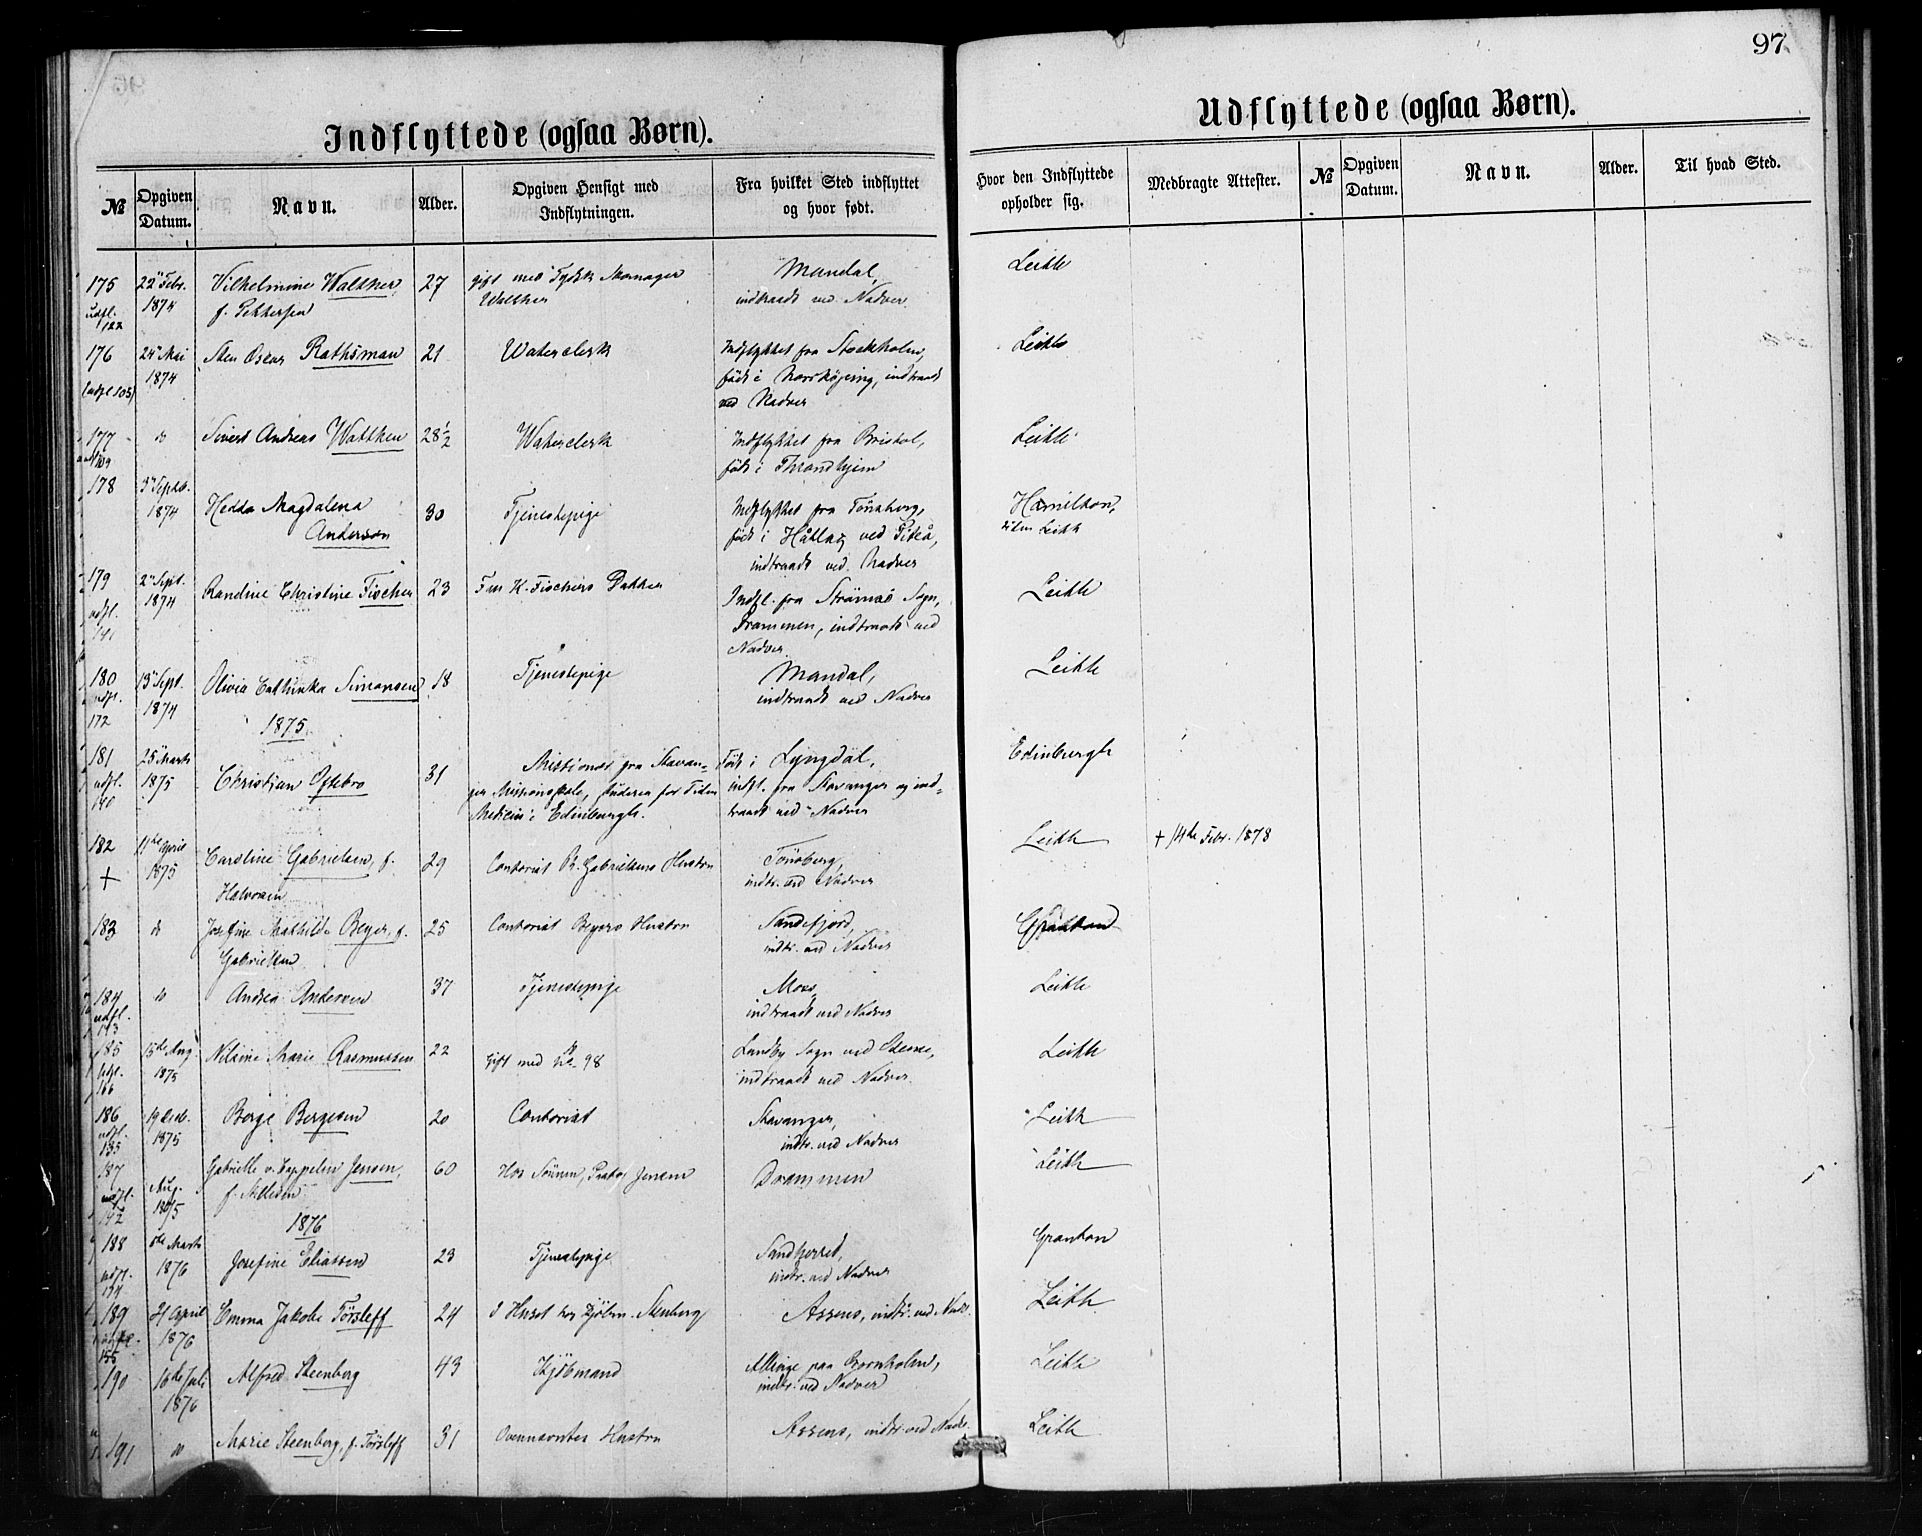 97
Indflyttede (ogsaa Børn).
Udflyttede (ogsaa Børn).
№ Opgiven Datum. Navn. Alder. Opgiven Hensigt med Indflytningen. Fra hvilket Sted indflyttet og hvor født. Hvor den Indflyttede opholder sig. Medbragte Attester. № Opgiven Datum. Navn. Alder. Til hvad Sted.
175 22de Febr. Vilhelmine Walther, 27 gift med Tydsk Manager Mandal, Leith
udfl. 122 1874 f. Pettersen Walther indtraadt ved Nadver
176 24de Mai Sten Oscar Rathsman 21 Waterclerk Indflyttet fra Stockholm, Leith
(udfl 105) 1874 født i Norrköping, indtraadt
ved Nadver
177 do Sivert Andreas Watthen 28½ Waterclerk Indflyttet fra Bristol, Leith
født i Throndhjem
178 3de Septb. Hedda Magdalena 30 Tjenestepige Indflyttet fra Tönsberg, Hamilton,
1874 Anderson født i Håtlag ved Piteå, siden Leith
indtraadt ved Nadver
179 2de Sept. Randine Christine Fischer 23 Fru K. Fischers Datter Indfl. fra Strömsö Sogn, Leith
udfl. 141 1874 Drammen, indtraadt ved
Nadver
180 13de Sept. Olivia Cathinka Simonsen 18 Tjenestepige Mandal, Leith
udfl. 172 1874 indtraadt ved Nadver
1875
181 25de Marts Christian Oftebro 31 Missionær fra Stavan- Født i Lyngdal, Edinburgh
udfl. 140 1875 ger Missionsskole, studerer for Tiden indfl. fra Stavanger og ind-
Medicin i Edinburgh. traadt ved Nadver
182 11te April Caroline Gabrielsen, f. 29 Contorist R. Gabrielsens Hustru Tönsberg, Leith + 14de Febr. 1878
+ 1875 Halvorsen indtr. ved Nadver
183 do Josefine Mathilde Beyer, f. 25 Contorist Beyers Hustru Sandefjord, Granton
Gabrielsen indtr. ved Nadver
184 do Andrea Andersen 37 Tjenestepige Moss, Leith
udfl. 143 indtraadt ved Nadver
185 15de Aug. Nilsine Marie Rasmussen 22 Gift med No 98 Lumby Sogn ved Odense, Leith
udfl. 166 1875 indtraadt ved Nadver
186 19 Decb. Berge Bergesen 20 Contorist Stavanger, Leith
udfl. 135 1875 indtr. ved Nadver
187 Aug. Gabrielle v. Cappelen Jensen, 60 Hos Sönnen, Pastor Jensen Drammen Leith
udfl. 142 1875 f. Nilssen
1876
188 5te Marts Josefine Eliassen 23 Tjenestepige Sandherred, Granton
udfl. 134 1876 indtr. ved Nadver
189 21 April Emma Jakobe Törsleff 24 I Huset hos Kjöbm. Steenberg Assens, indtr. ved Nadv. Leith
udfl. 155 1876
190 16de Juli Alfred Steenberg 43 Kjöbmand Allinge paa Bornholm, Leith
1876 indtr. ved Nadver
191 do Marie Steenberg, f. Törsleff 31 Ovennævntes Hustru Assens, indtr. ved Nadv. Leith